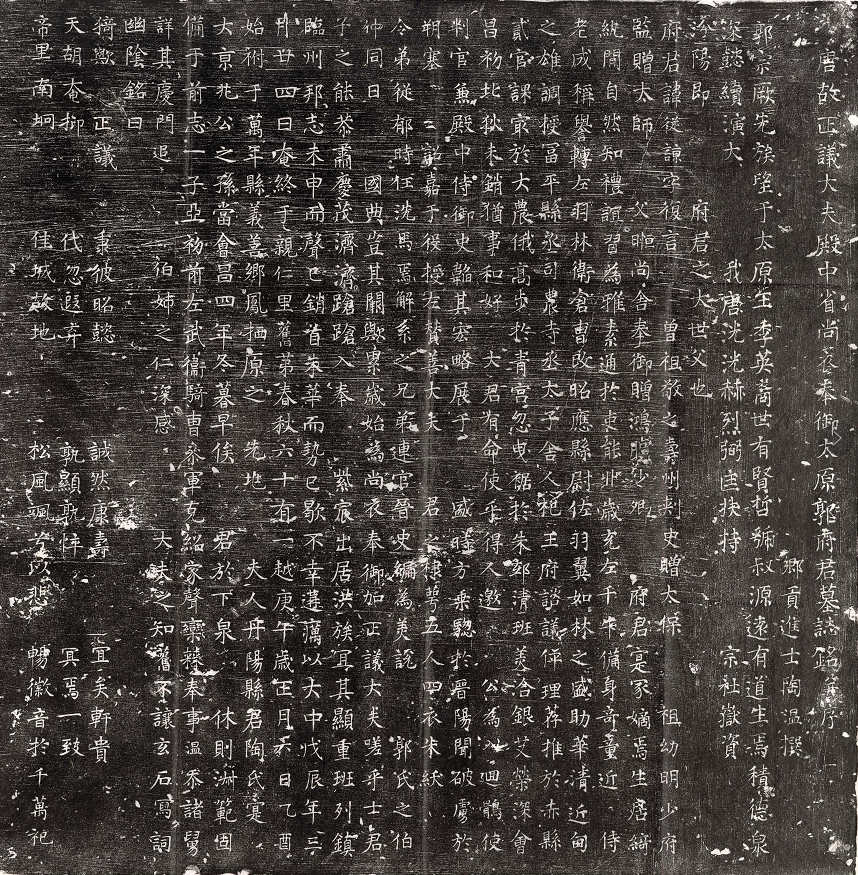 唐故正議大夫殿中省尚衣奉御太原郭府君墓誌銘并序
鄉貢進士陶温撰
郭宗厥先族望于太原生李英裔世有賢哲虢叔源遠有道生焉積德泉
深懿續演大 我唐洸洸赫烈弼匡扶持 宗社嶽資
汾陽即 府君之大世父也
府君諱從諒字復言 曾祖敬之壽州刺史贈太保 祖幼明少府
監贈太師 父晅尚舍奉御贈鴻臚少卿 府君寔冢嫡焉生居綺
紈閒自然知禮讓習為雅素通於吏能丱歲充左千牛備身奇童近侍
老成稱譽轉左羽林衛倉曹改昭應縣尉佐羽翼如林之盛助華清近甸
之雄調授富平縣丞司農寺丞太子舍人祀王府諮議倅理荐推於赤縣
貳官課最於大農俄高步於青宮忽曳裾於朱邸清班美洽銀艾榮深會
昌初北狄未銷猶事和好 大君有命使乎得人邀 公為入迴鶻使
判官兼殿中侍御史韜其宏略展于 盛時方乘驄於晉陽開破虜於
朔塞 二詔嘉于復授左贊善大夫 君之棣萼五人四衣朱紱
令弟從郁時任洗馬焉解系之兄弟連官晉史編為美說 郭氏之伯
仲同日 國典豈其關歟累歲始為尚衣奉御加正議大夫嗟乎士君
子之能恭肅慶茂濟濟蹌蹌入奉 紫宸出居洪族冝其顯重班列鎮
臨州邦志未申而聲已銷首朱華而勢已歇不幸遘癘以大中戊辰年三
月廿四日奄終于親仁里舊第春秋六十有一越庚午歲正月六日乙酉
始祔于萬年縣義善鄉鳳栖原之 先地 夫人丹陽縣君陶氏寔
大京兆公之孫當會昌四年冬暮早俟 君於下泉 休則淑範固
備于前志一子亞初前左武衛騎曹參軍克紹家聲欒棘奉事温忝諸舅
詳其慶門追 伯姊之仁深感 大夫之知舊不讓玄石寫詞
幽陰銘曰
猗歟 正議 秉彼昭懿 誠然康壽 宜矣軒貴
天胡奄抑 代忽遐弃 孰顯孰悴 冥焉一致
帝里南坰 佳城故地 松風颯兮以悲 暢徽音於千萬祀